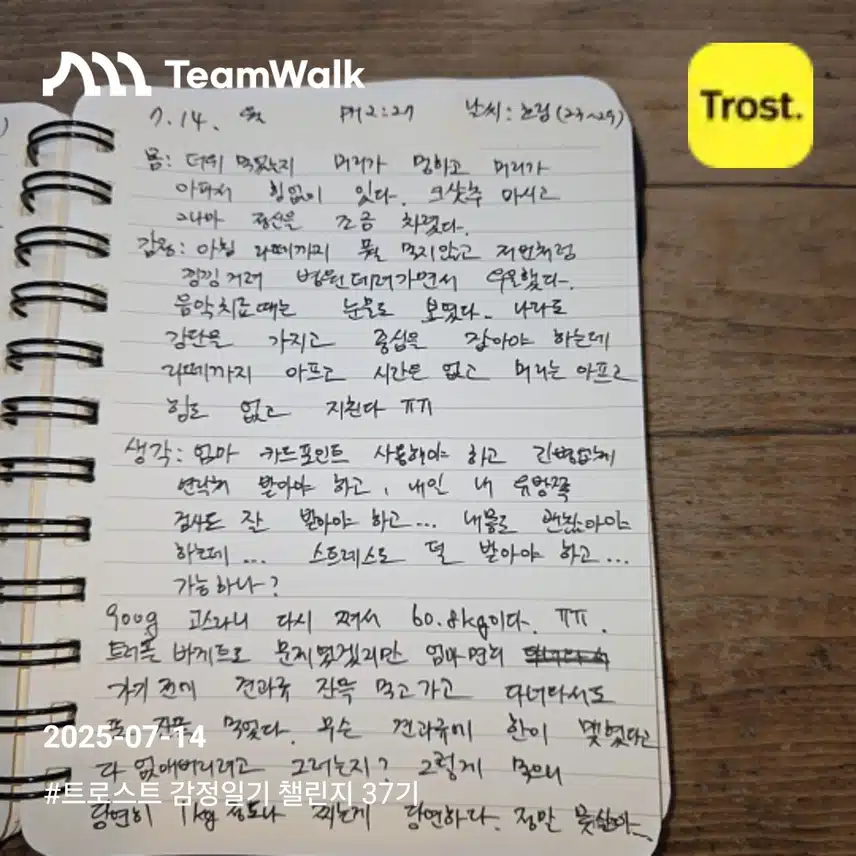 TeamWalk
Trost.
7. 14. 월 PM 2:27 날씨: 흐림(23~29)
몸: 더위 먹었는지 머리가 멍하고 머리가
아파서 힘없이 있다. 마시고
그나마 정신을 조금 차렸다.
감정: 아침 라떼까지 먹지않고 저번처럼
낑낑거려 병원데려가면서 우울했다.
음악치료때는 눈물도 보였다. 나라도
강단을 가지고 중심을 잡아야 하는데
라떼까지 아프고 시간은 없고 머리는 아프고
힘도 없고 지친다 ㅠㅠ
생각: 엄마 카드포인트 사용해야 하고 간병업체
연락처 받아야 하고, 내일 내 유방쪽
검사도 잘 받아야 하고... 내용도 괜찮아야
하는데... 스트레스도 덜 받아야 하고...
가능하나?
900g 고스라니 다시 쪄서 60.8kg이다. ㅠㅠ.
트러플 바게트도 문제였겠지만 엄마면회
가기 전에 견과류 잔뜩 먹고가고 다녀와서도
또 잔뜩 먹었다. 무슨 견과류에 한이 맺혔다고
2025-07-14
다 없애버리려고 그러는지? 그렇게 먹으니
#트로스트 감정일기 챌린지 37기
당연히 1kg 정도나 찌는게 당연하다. 정말 못살아...